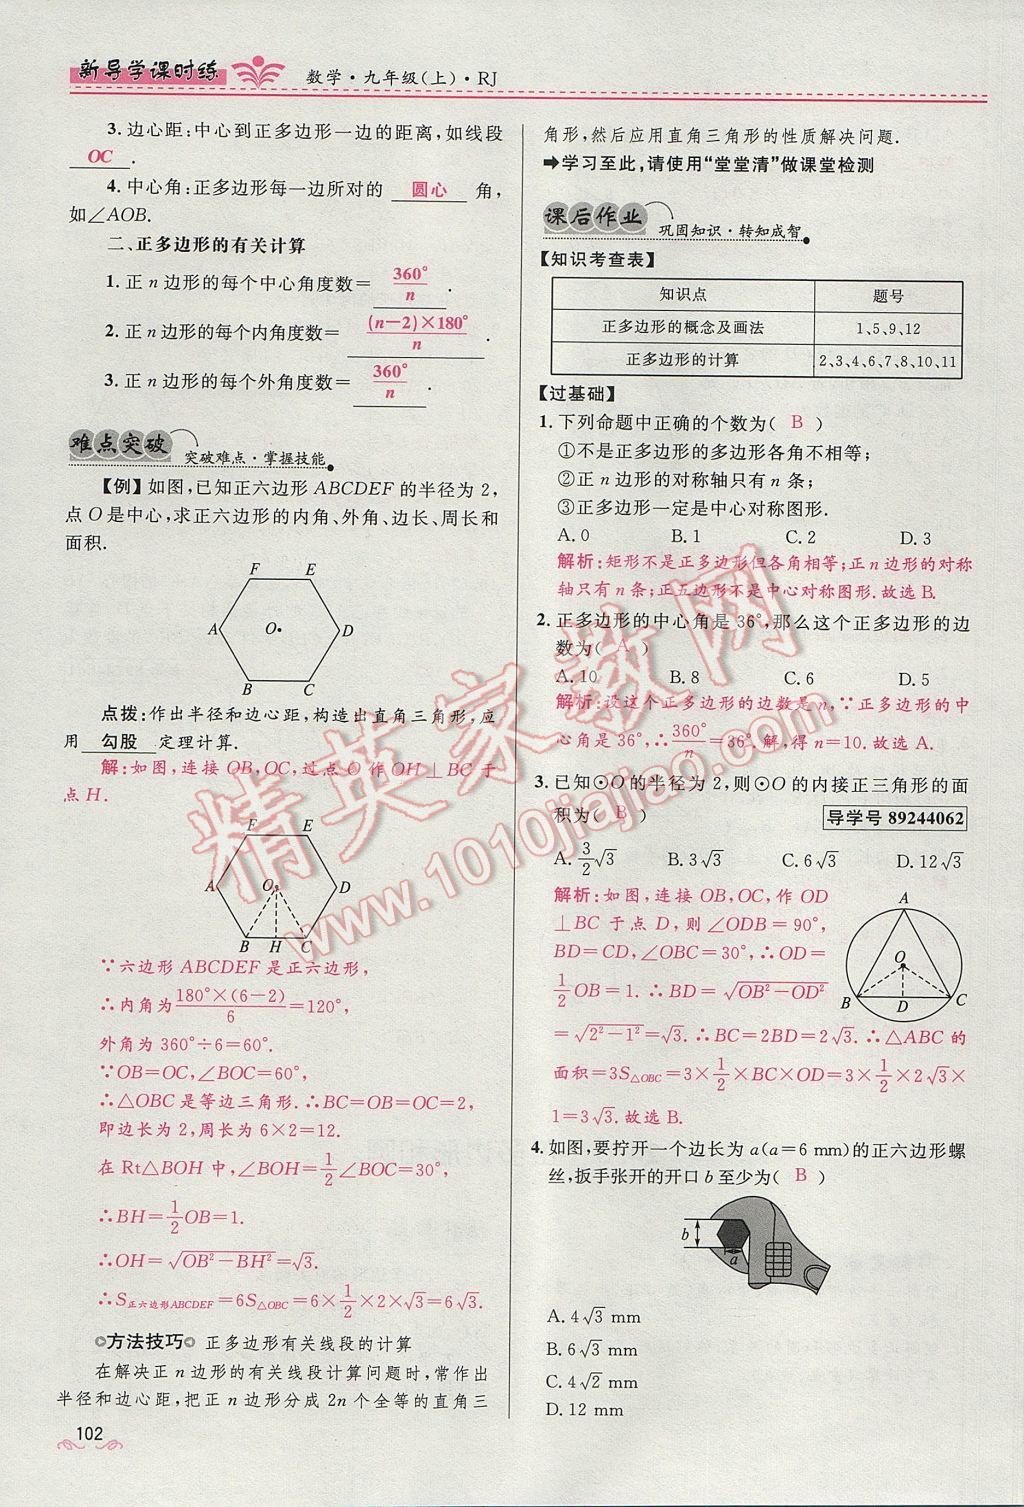 新导学课时练
数学·九年级(上)·RJ
3. 边心距:中心到正多边形一边的距离,如线段
OC .
4. 中心角:正多边形每一边所对的 圆心 角,
如∠AOB.
二、正多边形的有关计算
1. 正 n 边形的每个中心角度数= 360°/n .
2. 正 n 边形的每个内角度数= (n-2)×180°/n
3. 正 n 边形的每个外角度数= 360°/n .
难点突破 突破难点·掌握技能
【例】如图,已知正六边形 ABCDEF 的半径为 2,
点 O 是中心,求正六边形的内角、外角、边长、周长和
面积.
F E
A O D
B C
点拨:作出半径和边心距,构造出直角三角形,应
用 勾股 定理计算.
解:如图,连接 OB,OC,过点 O 作 OH⊥BC 于
点 H.
F E
A O D
B H C
∵六边形 ABCDEF 是正六边形,
∴内角为180°×(6-2)/6=120°,
外角为 360°÷6=60°.
∵OB=OC,∠BOC=60°,
∴△OBC 是等边三角形.∴BC=OB=OC=2,
即边长为 2,周长为 6×2=12.
在 Rt△BOH 中,∠BOH=1/2∠BOC=30°,
∴BH=1/2OB=1.
∴OH=√(OB²-BH²)=√3.
∴S正六边形ABCDEF=6S△OBC=6×1/2×2×√3=6√3.
方法技巧 正多边形有关线段的计算
在解决正 n 边形的有关线段计算问题时,常作出
半径和边心距,把正 n 边形分成 2n 个全等的直角三
102
角形,然后应用直角三角形的性质解决问题.
➡学习至此,请使用“堂堂清”做课堂检测
课后作业 巩固知识·转知成智
【知识考查表】
知识点 题号
正多边形的概念及画法 1、5、9、12
正多边形的计算 2、3、4、6、7、8、10、11
【过基础】
1. 下列命题中正确的个数为( B )
①不是正多边形的多边形各角不相等;
②正 n 边形的对称轴只有 n 条;
③正多边形一定是中心对称图形.
A. 0 B. 1 C. 2 D. 3
解析:矩形不是正多边形但各角相等;正 n 边形的对称
轴只有 n 条;正五边形不是中心对称图形.故选 B.
2. 正多边形的中心角是 36°,那么这个正多边形的边
数为( A )
A. 10 B. 8 C. 6 D. 5
解析:设这个正多边形的边数是 n,∵正多边形的中
心角是 36°,∴360°/n=36°.解,得 n=10.故选 A.
3. 已知⊙O 的半径为 2,则⊙O 的内接正三角形的面
积为( B ) 导学号 89244062
A. 3/2√3 B. 3√3 C. 6√3 D. 12√3
解析:如图,连接 OB,OC,作 OD
⊥BC 于点 D,则 ∠ODB=90°,
BD=CD,∠OBC=30°,∴OD=
1/2OB=1.∴BD=√(OB²-OD²)
=√(2²-1²)=√3.∴BC=2BD=2√3.∴△ABC 的
面积=3S△OBC=3×1/2×BC×OD=3×1/2×2√3×
1=3√3.故选 B.
A
O
B D C
4. 如图,要拧开一个边长为 a(a=6 mm)的正六边形螺
丝,扳手张开的开口 b 至少为( B )
b
a
A. 4√3 mm
B. 6√3 mm
C. 4√2 mm
D. 12 mm
精英家教网
www.1010jiajiao.com